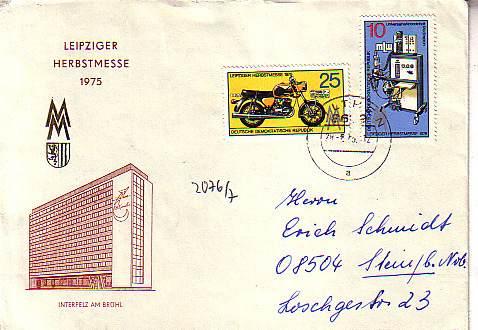 LEIPZIGER
HERBSTMESSE
1975
MM
INTERPELZ AM BRÜHL
LEIPZIGER HERBSTMESSE 1975
25
DEUTSCHE DEMOKRATISCHE REPUBLIK
10
LEIPZIGER HERBSTMESSE 1975
a
2076/7
Herrn
Erich Schmidt
08504 Stein/b. Nbg.
Loschgestr. 23